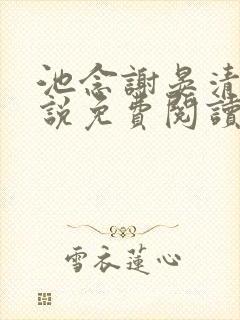 池念謝晏清
說免費閱讀
雪衣蓮心